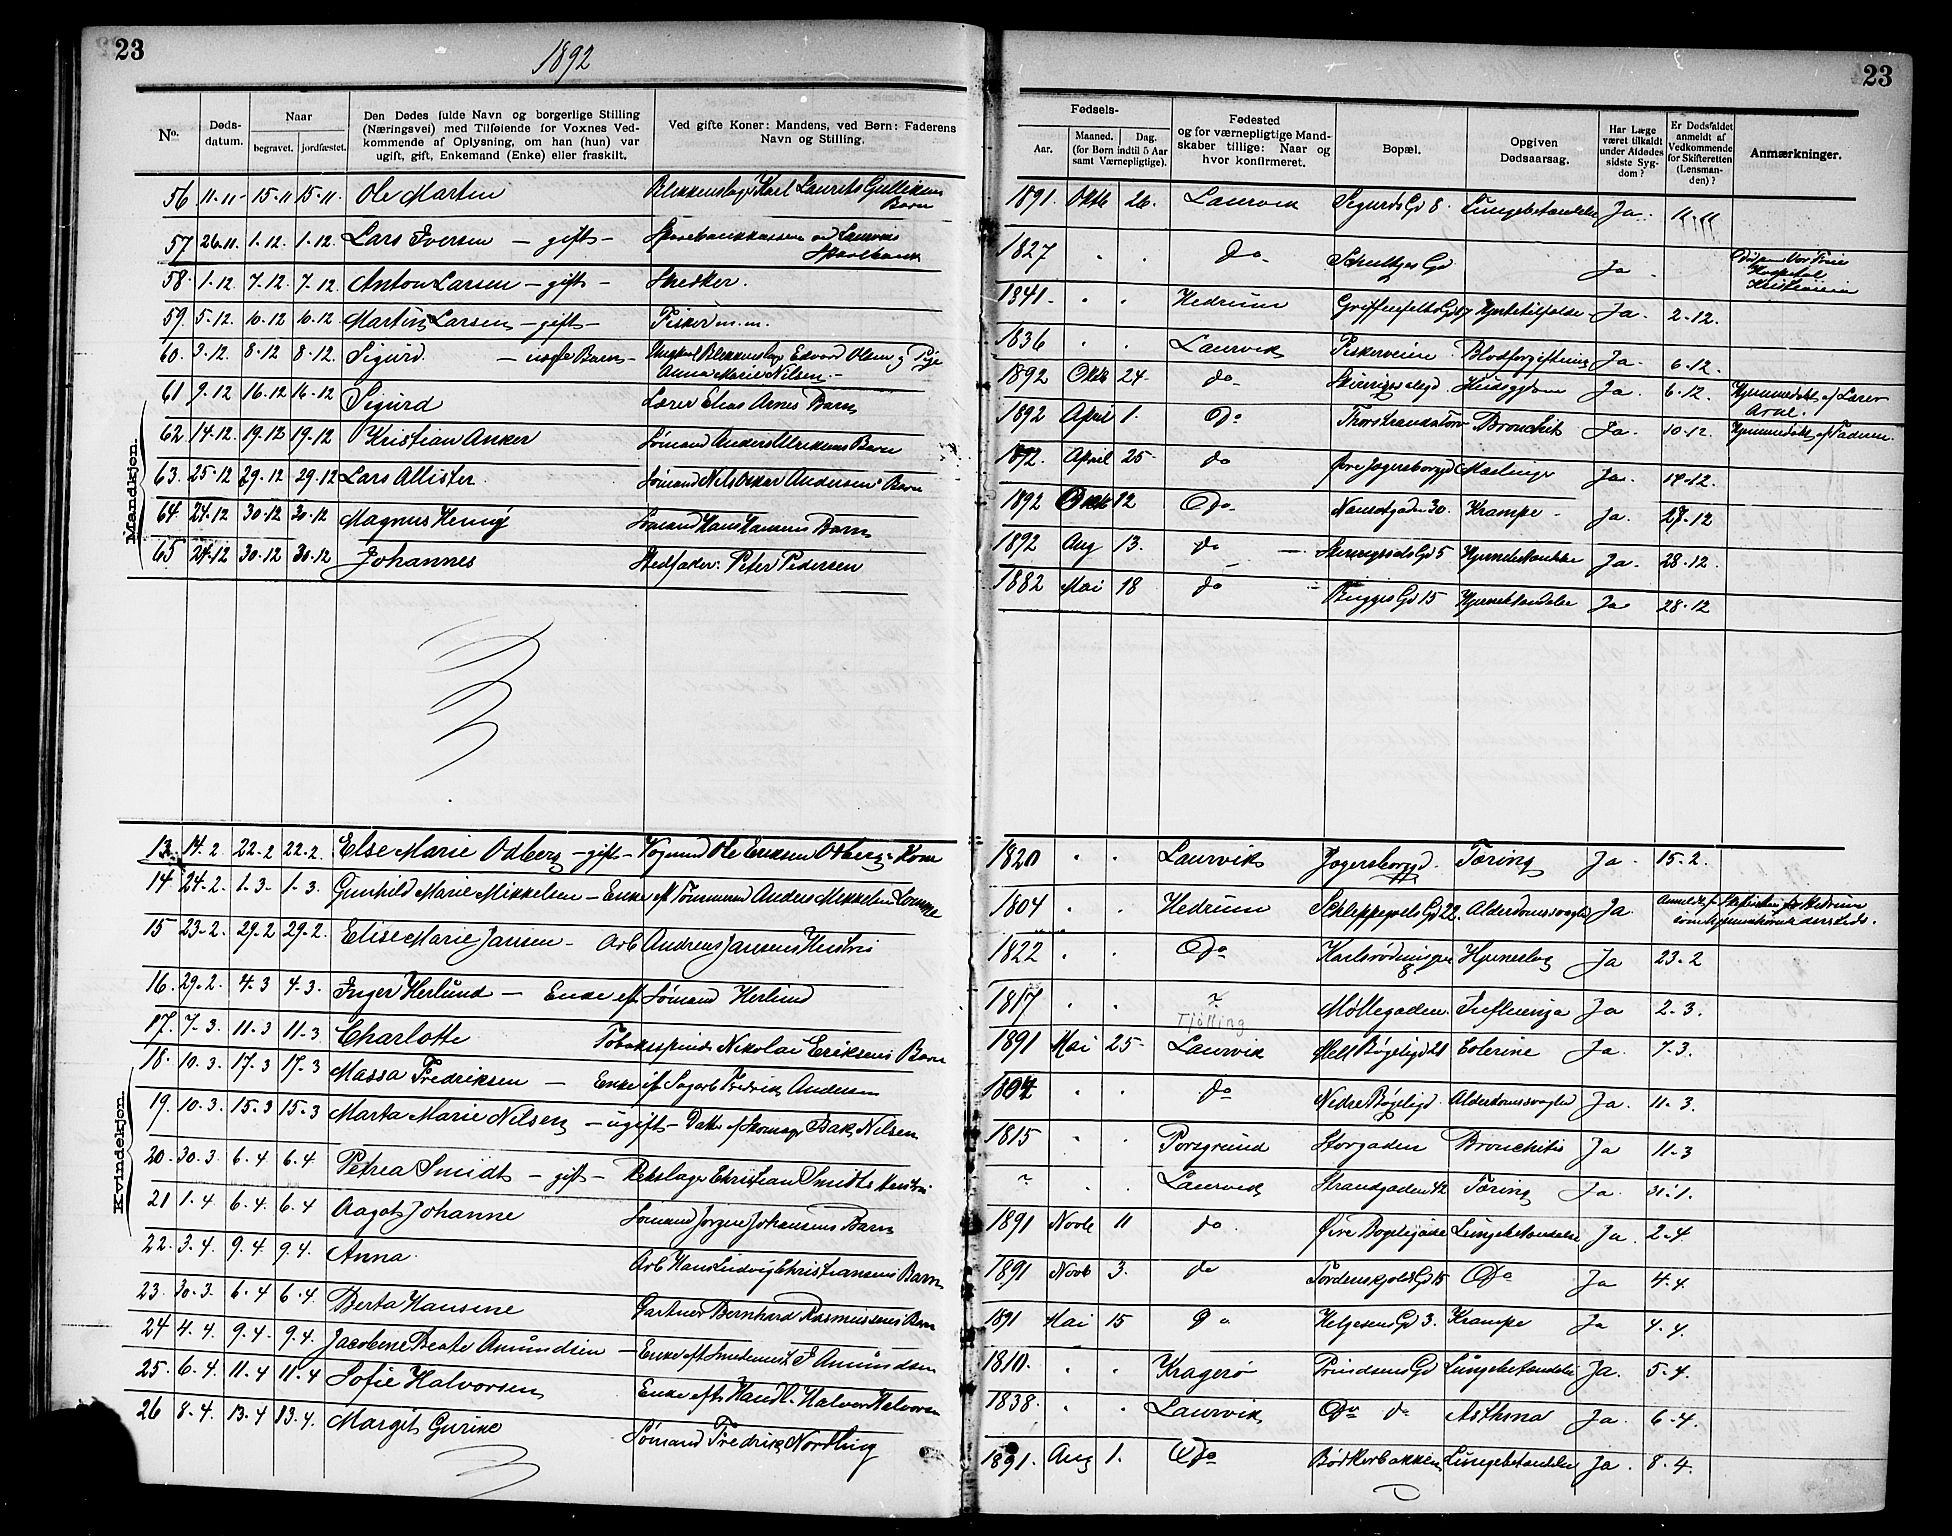 23
1892
23
No.
Døds-datum.
Naar
begravet. jordfæstet.
Den Dødes fulde Navn og borgerlige Stilling (Næringsvei) med Tilføiende for Voxnes Vedkommende af Oplysning, om han (hun) var ugift, gift, Enkemand (Enke) eller fraskilt.
Ved gifte Koner: Mandens, ved Børn: Faderens Navn og Stilling.
Fødsels-
Aar.
Maaned. Dag.
(for Børn indtil 5 Aar samt Værnepligtige).
Fødested
og for værnepligtige Mandskaber tillige: Naar og hvor konfirmeret.
Bopæl.
Opgiven Dødsaarsag.
Har Læge været tilkaldt under Afdødes sidste Sygdom?
Er Dødsfaldet anmeldt af Vedkommende for Skifteretten (Lensmanden)?
Anmærkninger.
Mandkjøn.
56 11-11 15-11 15-11 Ole Martin Blikkenslager Karl Laurits Gulliksens Barn 1891 Oktb 26. Laurvik Sigurds Gd 8. Lungebetændelse Ja. 11-11
57 26-11 1-12. 1-12. Lars Iversen - gift - Sparebankkasserer ved Laurviks Sparebank 1827 " " do Schultzes Gd Ja Vor Frue Hospital Kristiania
58. 1-12 7-12. 7-12 Anton Larsen - gift - Snedker. 1841. " " Hedrum Griffenfelts Gd Hjertetilfælde Ja. 2-12.
59. 5-12. 10-12 10-12 Martin Larsen - gift - Fisker m.m. 1836 " " Laurvik Fiskerveien Blodforgiftning Ja. 6-12.
60. 3-12. 8-12 8-12. Sigurd - uægte Barn - Ungkarl Blikkenslager Edvard Olsen og Pige Anna Marie Nilsen. 1892 Oktb 24. do Ja. 6-12. Hjemmedøbt af Lærer Arne.
61 9-12 16-12 16-12 Sigurd Lærer Elias Arnes Barn 1892 April 1. Do Bronchit Ja. 10-12. Hjemmedøbt af Faderen.
62 14-12. 19-12 19-12 Kristian Anker Sømand Anders Ulriksens Barn 1892. April 25 do Øvre Jegersborggd Mæslinger Ja. 14-12.
63. 25-12 29-12 29-12 Lars Allister. Sømand Nils Oskar Andersens Barn 1892 Oktb 12 Do Nansetgaden 30. Krampe - Ja. 27-12
64. 24-12 30-12 30-12 Magnus Henry Sømand Hans Hansens Barn 1892 Aug 13. do Ja. 28-12.
65 24-12 30-12 30-12 Johannes Stedfader: Peter Pedersen 1882 Mai 18 do Bugges Gd 15 Hjernebetændelse Ja 28-12
Kvindekjøn.
13. 14-2 22-2 22-2. Else Marie Odberg - gift - Vognmd Ole Eriksen Odbergs Kone 1820 " " Laurvik Jegersborggd. Tæring Ja 15-2.
14 24-2. 1-3- 1-3. Gunhild Marie Mikkelsen - Enke eft Tømmermd Anders Mikkelsen 1804 " " Hedrum Schleppegrels Gd 22. Alderdomssvaghed Ja.
15 23-2. 29-2 29-2. Elise Marie Jansen - Arb Andreas Jansens Hustru 1822 " " Do Hjerneslag Ja 23-2
16. 29-2. 4-3 4-3. Inger Herlund - Enke eft. Sømand Herlund 1817 " " ? Tjølling Møllegaden. Influenza Ja 2-3.
17. 7-3. 11-3 11-3 Charlotte Tobakspinder Nikolai Eriksens Barn 1891 Mai 25- Laurvik Mell Bøgeligd 21 Colerine Ja. 7-3.
18. 10-3. 17-3 17-3 Massa Fredriksen - Enke eft Sagarb Fredrik Andersen " " do Nedre Bøgeligd. Alderdomssvaghed Ja. 11-3.
19. 10-3. 15-3 15-3 Marta Marie Nilsen - ugift - Datter af Skomager Bak Nilsen 1815 " " Porsgrund Storgaden Bronchitis Ja 11-3
20. 30-3 6-4 6-4 Petrea Smidt - gift - Rebslager Christian Smidts Hustru ? " " Laurvik Strandgaden 42 Tæring Ja. 31-1.
21 1-4 6-4 6-4 Aagot Johanne Sømand Jørgen Johansens Barn 1891 Novb 11 do. Øvre Bøgeligade Lungebetændelse Ja. 2-4.
22. 3-4. 9-4. 9-4. Anna. Arb Hans Ludvig Christiansens Barn 1891 Novb 3. do Tordenskjolds Gd 15 Do Ja 4-4.
23. 30-3. 6-4 6-4. Berta Hansine Gartner Bernhard Rasmussens Barn 1891 Mai 15 do Helgesens Gd 3. Krampe Ja 4-4.
24 4-4. 9-4- 9-4. Jacobine Beate Amundsen - Enke eft Smedemester E Amundsen 1810. " " Kragerø Prindsens Gd Lungebetændelse Ja. 5-4.
25. 6-4. 11-4 11-4 Sofie Halvorsen Enke eft Handl. Halvor Halvorsen 1838. " " Laurvik Do do Asthma Ja. 6-4.
26 8-4. 13-4 13-4. Margit Gurine Sømand Fredrik Nordling 1891. Aug 1. Do Bødkerbakken Lungebetændelse Ja. 8-4.